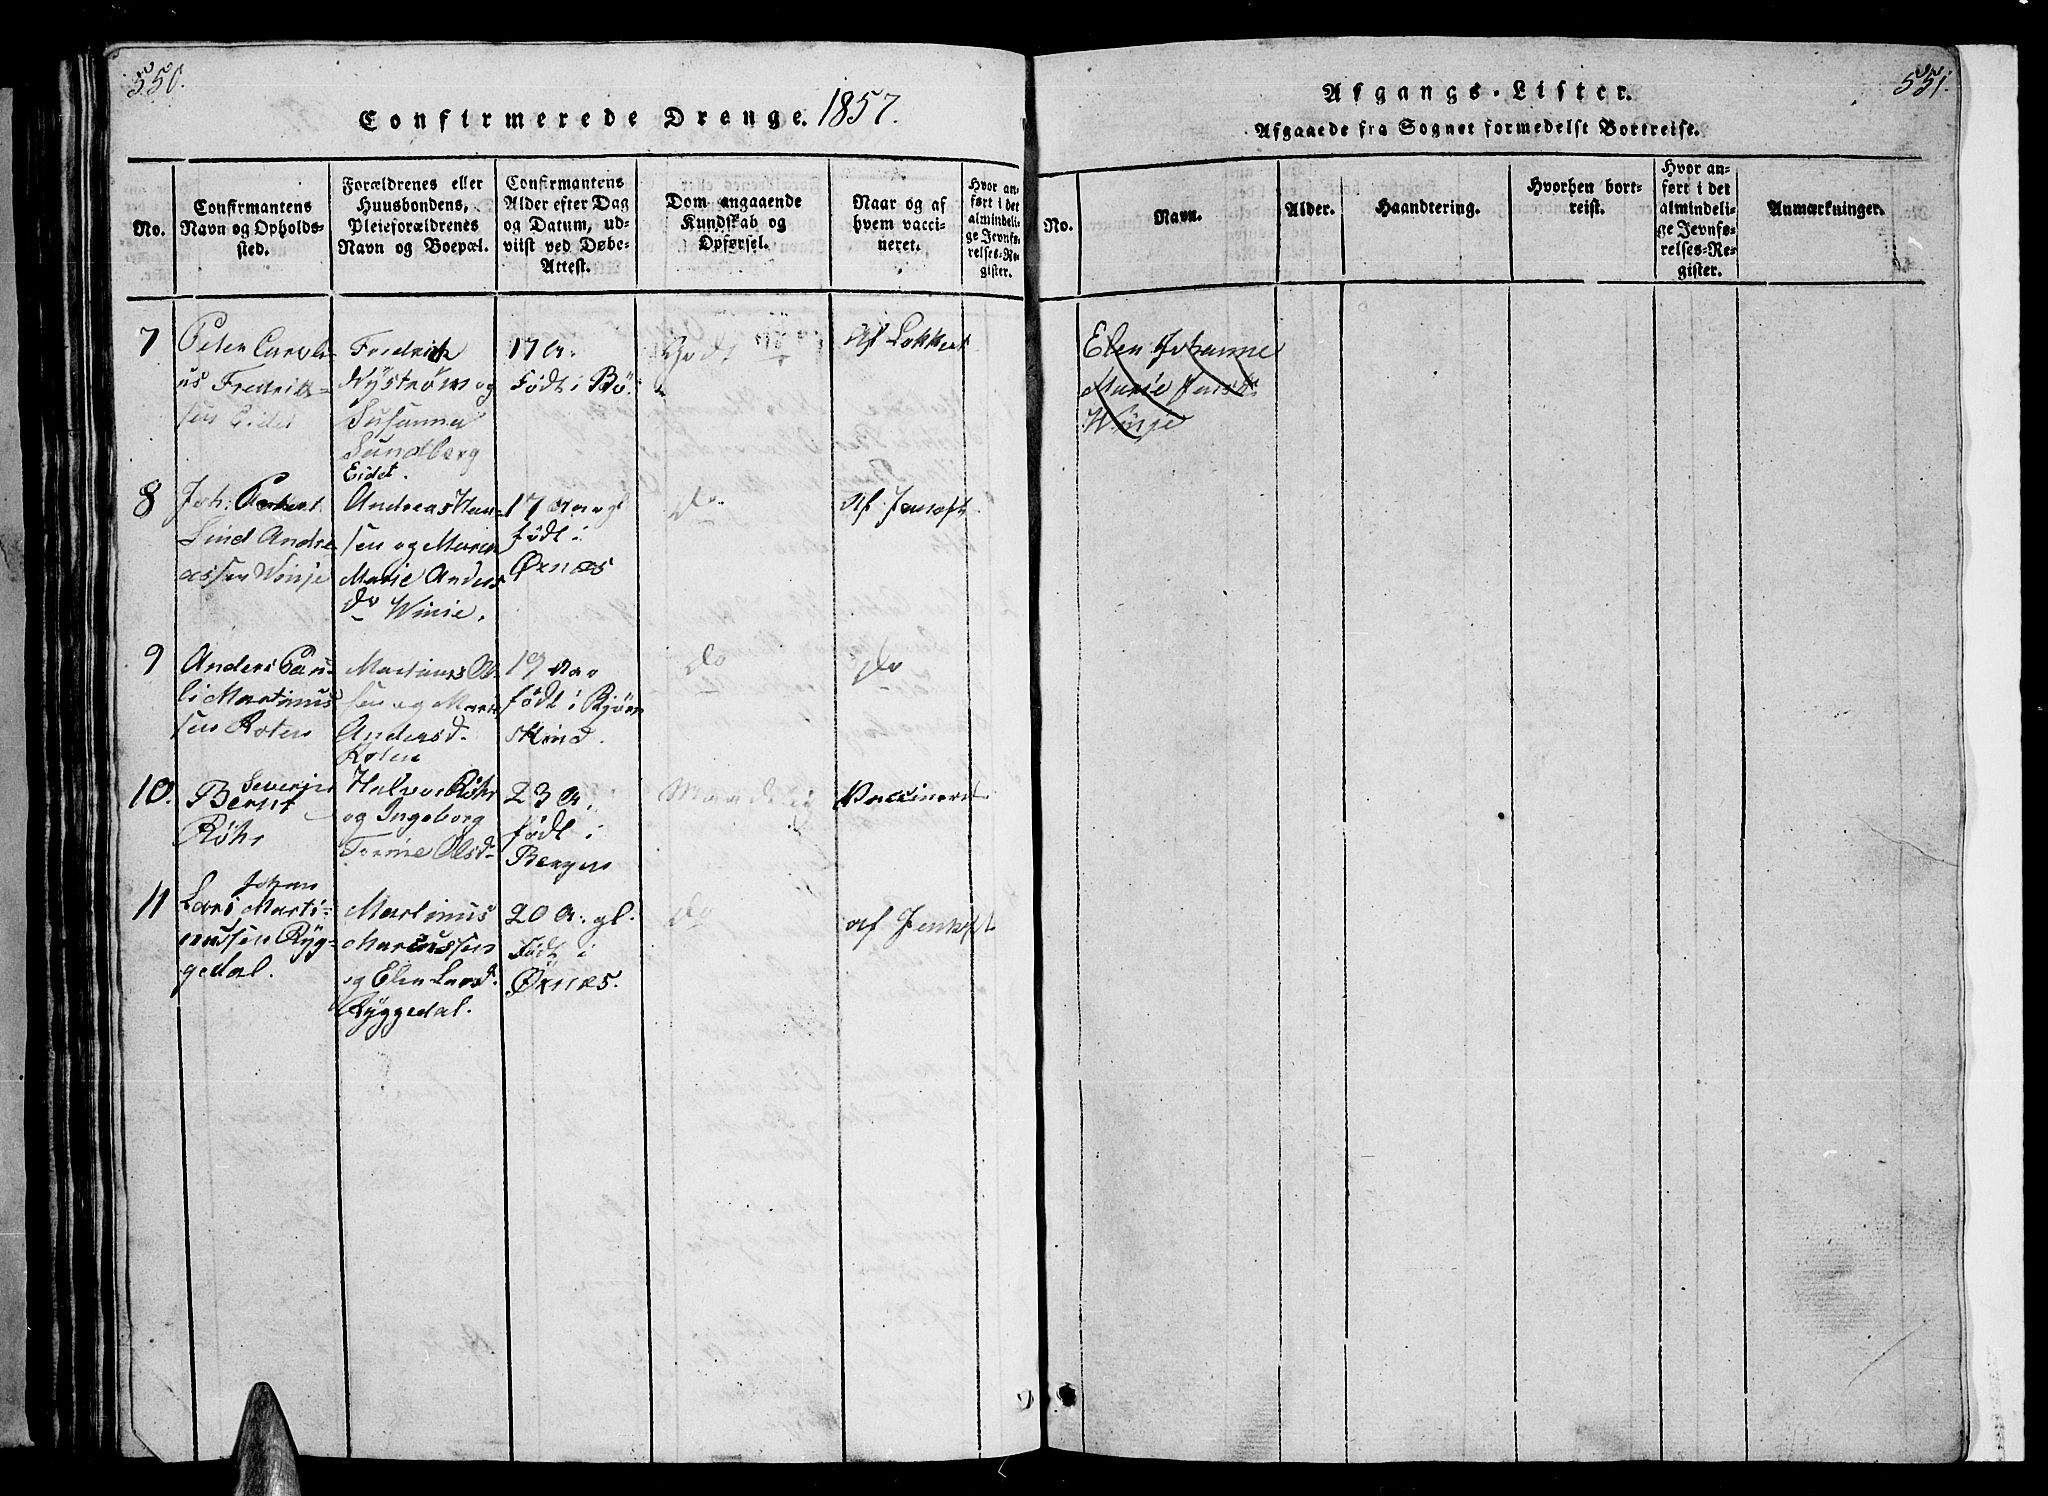 550.
Confirmerede Drenge. 1857.
No.
Confirmantens
Navn og Opholds-
sted.
Forældrenes eller
Huusbondens,
Pleieforældrenes
Navn og Boepæl.
Confirmantens
Alder efter Dag
og Datum, ud-
viist ved Døbe-
Attest.
Dom angaaende
Kundskab og
Opførsel.
Naar og af
hvem vacci-
neret.
Hvor an-
ført i det
almindeli-
ge Jevnfø-
relses-Re-
gister.
7
Peter Caroli-
us Fredrik-
sen Eidet
Fredrick
Nystrøm og
Susanna
Sundberg
Eidet.
17 A.
Født i Bø.
Godt
Af Lokkert
8
Joh:
Lind Andre-
assen Winje
Andreas Han-
sen og Maren
Marie Anders
do Winie.
17 Aar gl
født i
Øxnæs
do
Af Jentoft.
9
Anders Pau-
li Martinus
sen Roten
Martinus Ol-
sen og Maren
Andersd.
Roten
19 Aar
født i Bjørn
skind.
do
do
10.
Severin
Bernt
Röhr
Halvor Röhr
og Ingeborg
Tormine Olsd
23 A.
født i
Bergen
Maadelig
Vaccineret
11
Johan
Lars, Marti-
nussen Ryg-
gedal.
Martinus
Marcussen
og Elen Larsd.
Ryggedal.
20 A. gl.
Født i
Øxnæs.
do
af Jentoft
551.
Afgangs-Lister.
Afgaaede fra Sognet formedelst Bortreise.
No.
Navn.
Alder.
Haandtering.
Hvorhen bort-
reist.
Hvor an-
ført i det
almindeli-
ge Jevnfø-
relses-Re-
gister.
Anmærkninger.
Elen Johanne
Marie Jensd.
Winje